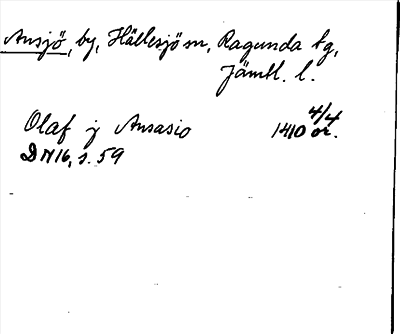 Ansjö, by, Hällesjö sn, Ragunda tg,
Jämtl. l.
Olaf j Ansasio 1410 4/4 or.
DN16, s. 59